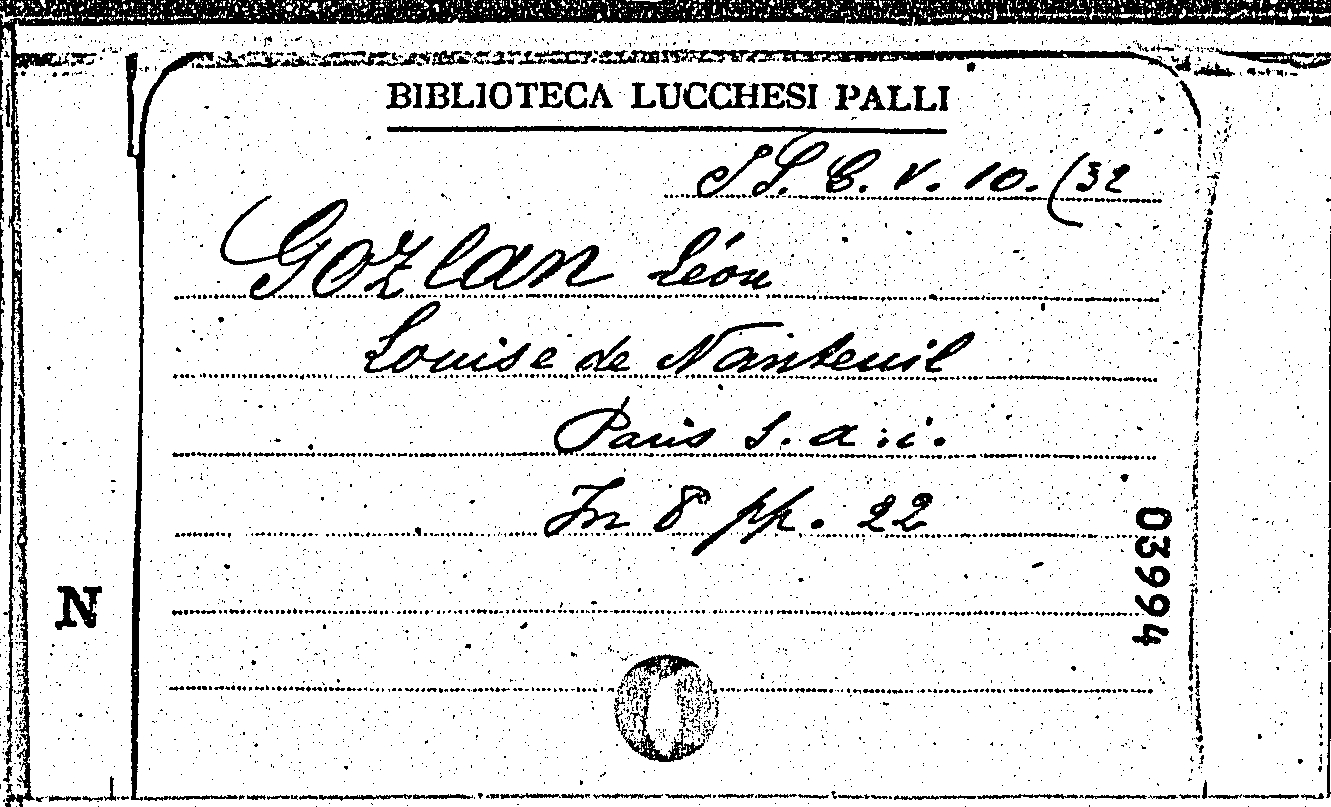 BIBLIOTECA LUCCHESI PALLI
S L. C. V. 10. (32
Gozlan Léon
Louise de Nanteuil
Paris s. a. i.
In 8 pp. 22
03994
N